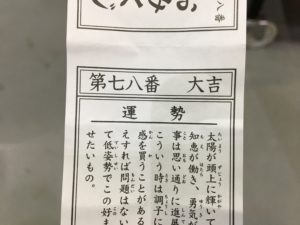 八番
第七八番 大吉
運勢
太陽が頭上に輝いて
知恵が働き、勇気が
事は思い通りに進展
こういう時は調子に
感を買うことがある
えすれば問題はない
て低姿勢でこの好ま
せたいもの。